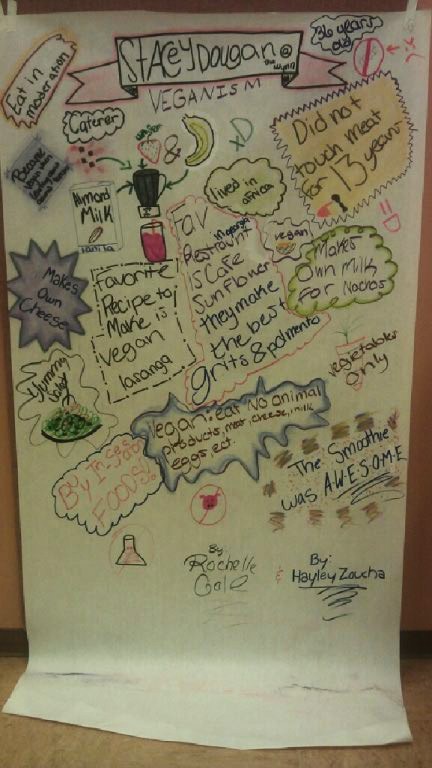 Stacey Dougan @
VEGANISM
36 years
old
Eat in
moderation
Caterer
&
xD
Did not
touch meat
for 13 years
=D
Almond
Milk
vanilla
lived in
africa
Fav
Restraunt
is Cafe
Sunflower
they make
the best
grits & polmento
vegan
Makes
Own milk
For Nachos
Makes
Own
Cheese
Favorite
Recipe to
Make is
vegan
lasanga
Yummy
salad
vegetables
only
vegan: eat No animal
products, meat, cheese, milk
eggs, ect.
Buy In-Season
FOODS!!
The Smoothie
was A.W.E.S.O.M.E
By:
Rochelle
Gale
&
By:
Hayley Zaucha